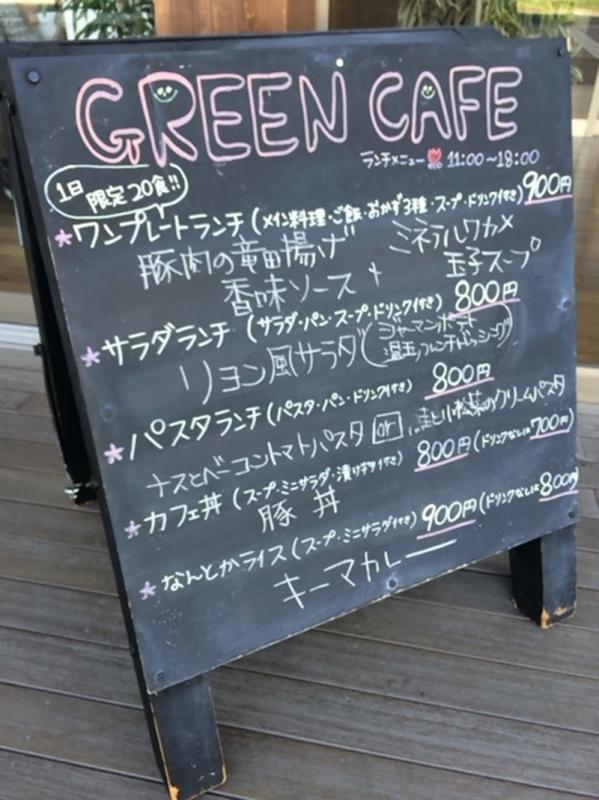 GREEN CAFE
ランチメニュー 11:00～18:00
1日限定20食!!
ワンプレートランチ(メイン料理・ご飯・おかず3種・スープ・ドリンク付き) 900円
豚肉の竜田揚げ ミネラルワカメ
香味ソース + 玉子スープ
サラダランチ(サラダ・パン・スープ・ドリンク付き) 800円
リヨン風サラダ(ジャーマンポテト
温玉フレンチドレッシング)
パスタランチ(パスタ・パン・ドリンク付き) 800円
ナスとベーコントマトパスタ or と小松菜のクリームパスタ
カフェ丼(スープ・ミニサラダ・漬け物付き) 800円(ドリンクなしは700円)
豚丼
なんとかライス(スープ・ミニサラダ付き) 900円(ドリンクなしは800円
キーマカレー